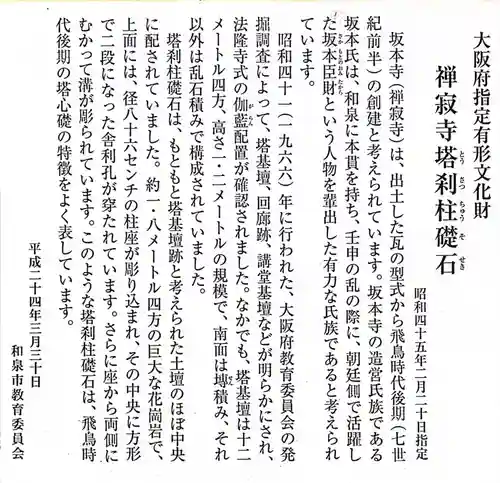 大阪府指定有形文化財
禅寂寺塔刹柱礎石
とう さつ ちゅう そ せき
昭和四十五年二月二十日指定
坂本寺（禅寂寺）は、出土した瓦の型式から飛鳥時代後期（七世
紀前半）の創建と考えられています。坂本寺の造営氏族である
坂本氏は、和泉に本貫を持ち、壬申の乱の際に、朝廷側で活躍し
た坂本臣財という人物を輩出した有力な氏族であると考えられ
さかもとのおみたから
ています。
昭和四十一（一九六六）年に行われた、大阪府教育委員会の発
掘調査によって、塔基壇、回廊跡、講堂基壇などが明らかにされ、
法隆寺式の伽藍配置が確認されました。なかでも、塔基壇は十二
がらん
メートル四方、高さ一・二メートルの規模で、南面は塼積み、それ
せん
以外は乱石積みで構成されていました。
塔刹柱礎石は、もともと塔基壇跡と考えられた土壇のほぼ中央
に配されていました。約一・八メートル四方の巨大な花崗岩で、
上面には、径八十六センチの柱座が彫り込まれ、その中央に方形
で二段になった舎利孔が穿たれています。さらに座から両側に
むかって溝が彫られています。このような塔刹柱礎石は、飛鳥時
代後期の塔心礎の特徴をよく表しています。
平成二十四年三月三十日
和泉市教育委員会